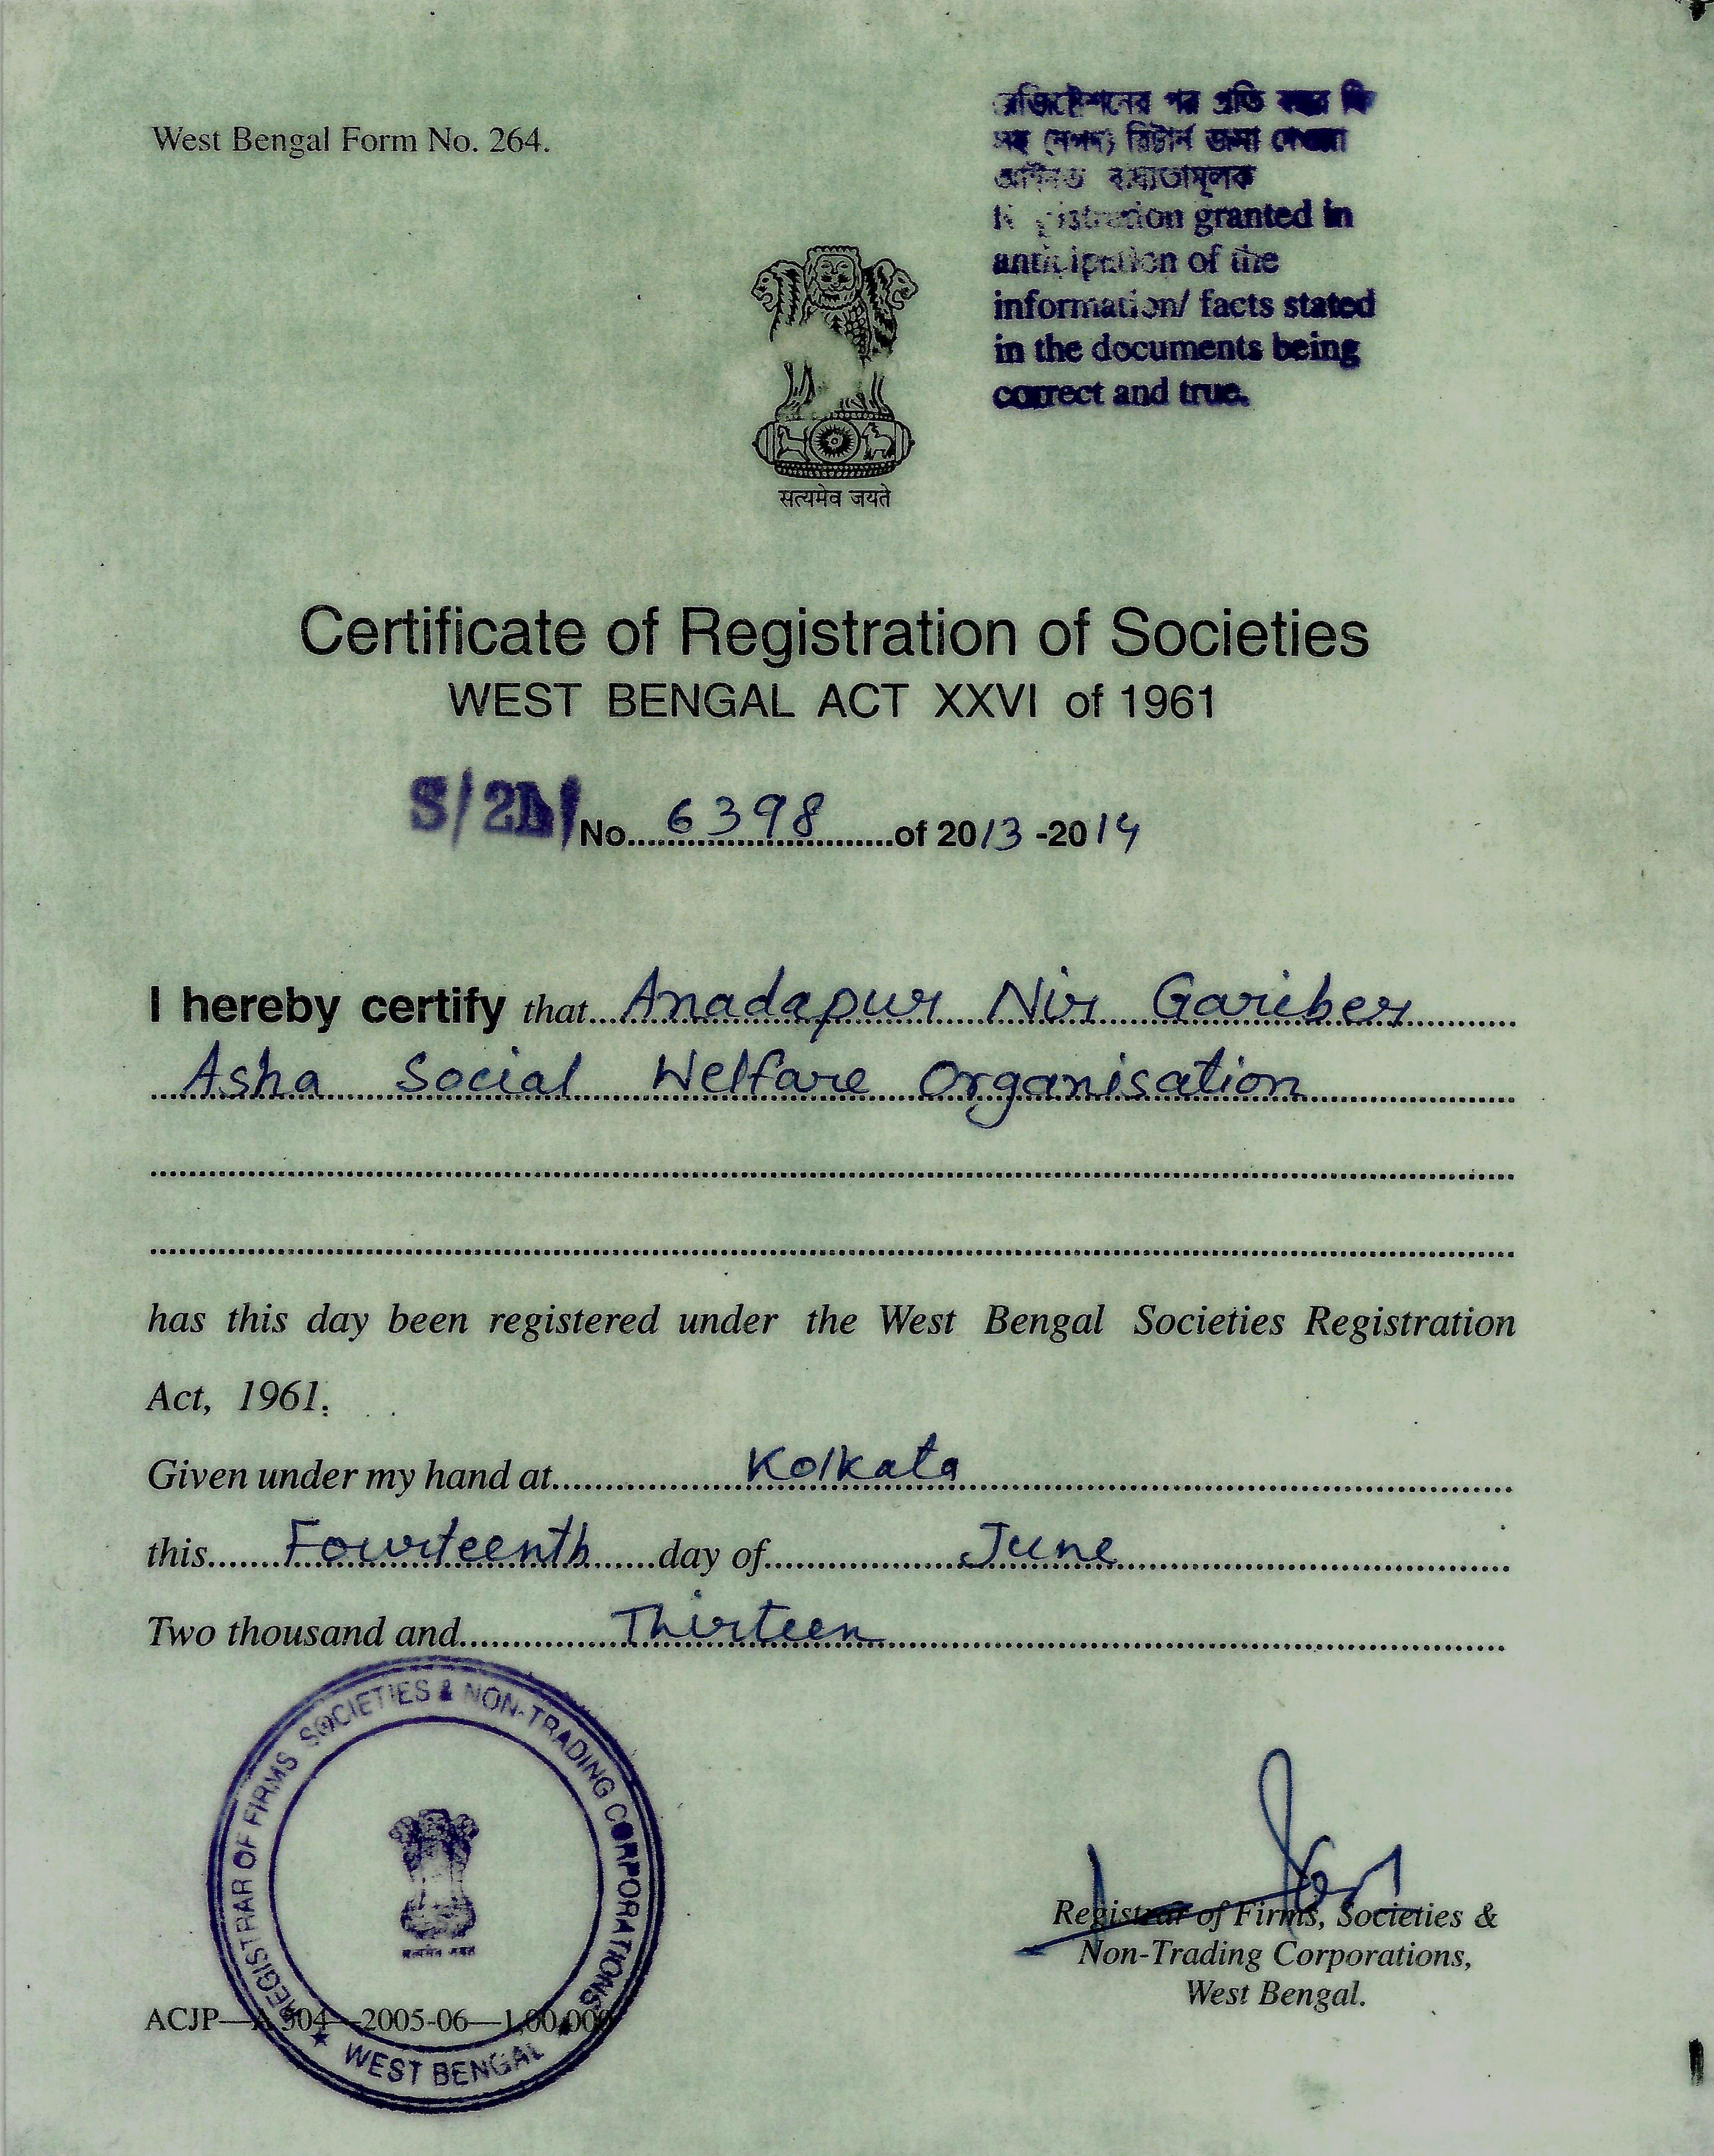 West Bengal Form No. 264.
রেজিষ্ট্রেশনের পর প্রতি বছর ফি
সহ রিটার্ন জমা দেওয়া
আইনত বাধ্যতামূলক
Registration granted in
anticipation of the
information/ facts stated
in the documents being
correct and true.
सत्यमेव जयते
Certificate of Registration of Societies
WEST BENGAL ACT XXVI of 1961
S/2L/ No. 6398 of 2013 -2014
I hereby certify that Anadapur Nir Gariber
Asha Social Welfare Organisation
has this day been registered under the West Bengal Societies Registration
Act, 1961.
Given under my hand at Kolkata
this Fourteenth day of June
Two thousand and Thirteen
REGISTRAR OF FIRMS SOCIETIES & NON-TRADING CORPORATIONS
सत्यमेव जयते
★ WEST BENGAL ★
Registrar of Firms, Societies &
Non-Trading Corporations,
West Bengal.
ACJP—A 504—2005-06—1,00,000